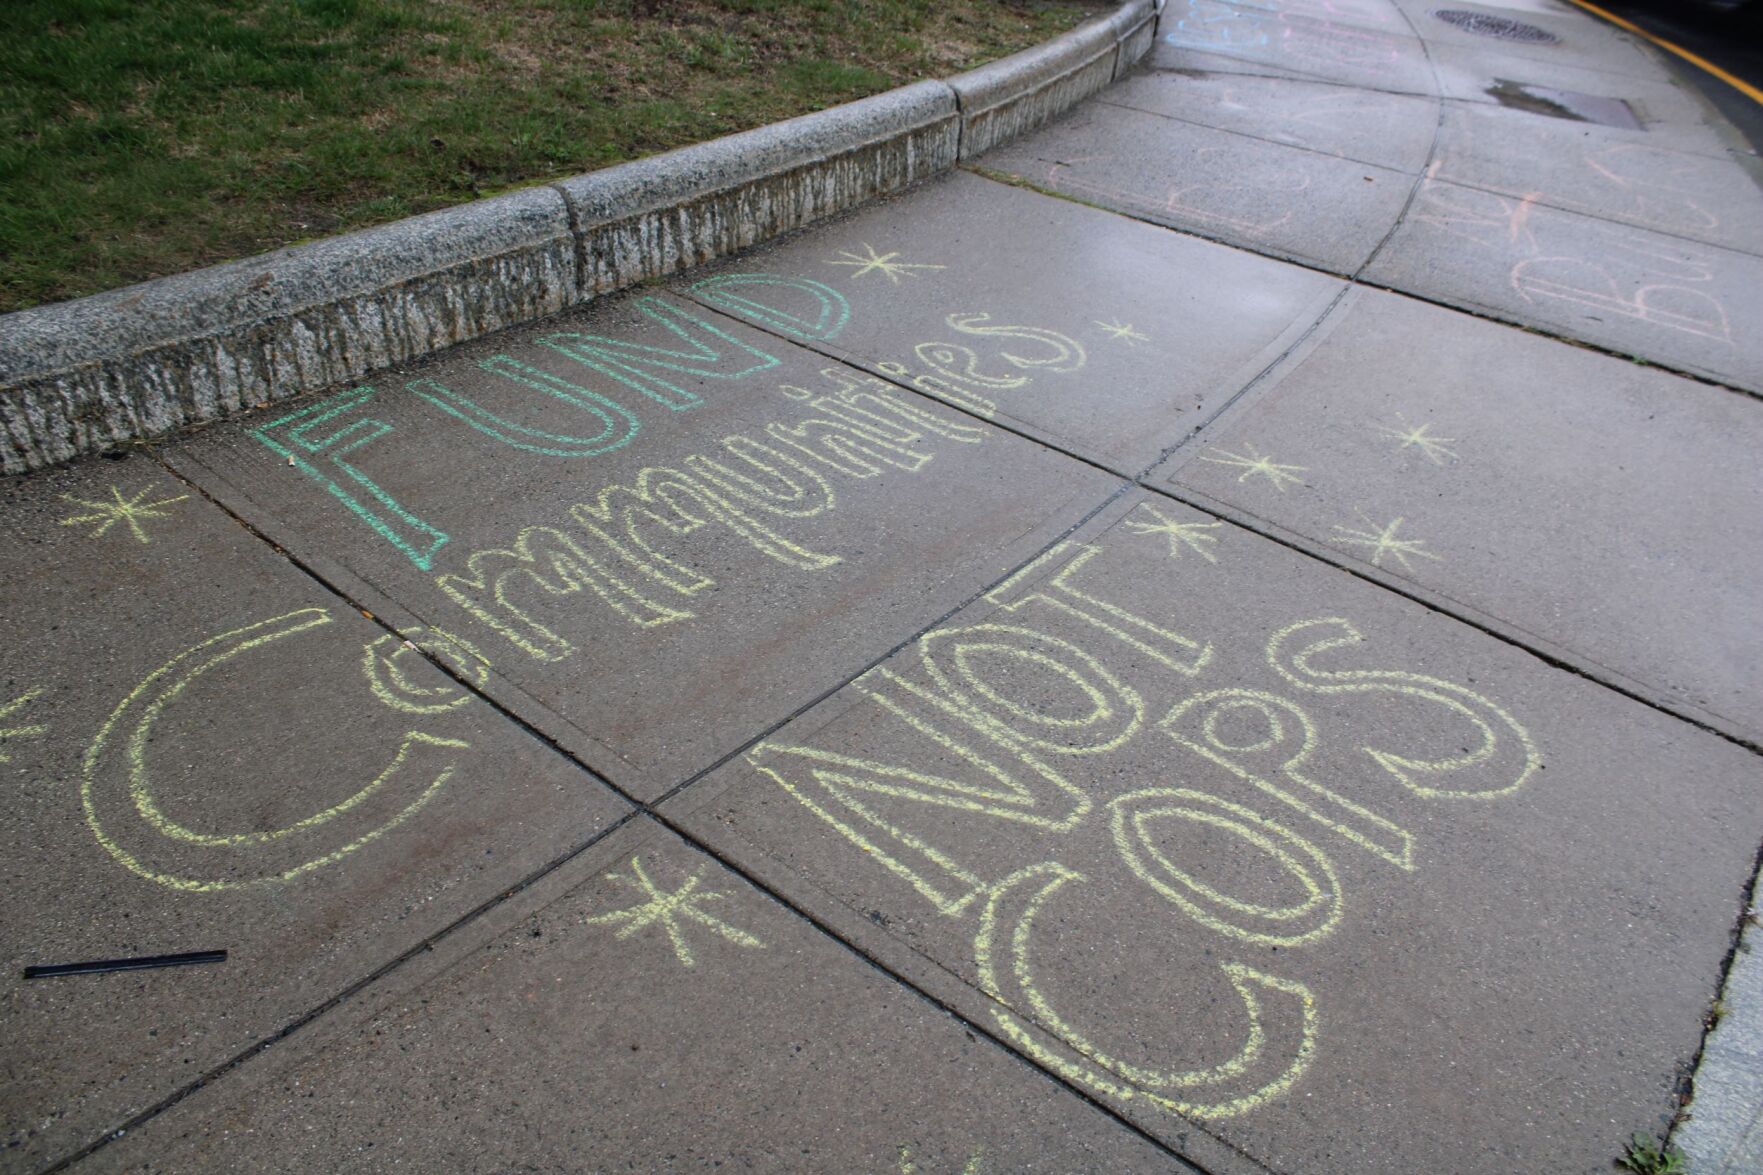 FUND
Communities
NOT
COPS